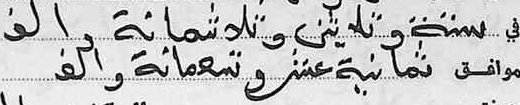 في سنة وثلاثين وثلاثمائة والف
موافق ثمانية عشر وتسعمائة والف